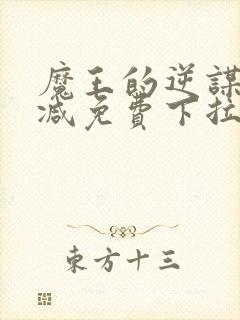 魔王的逆謀
减免費下拉
東方十三